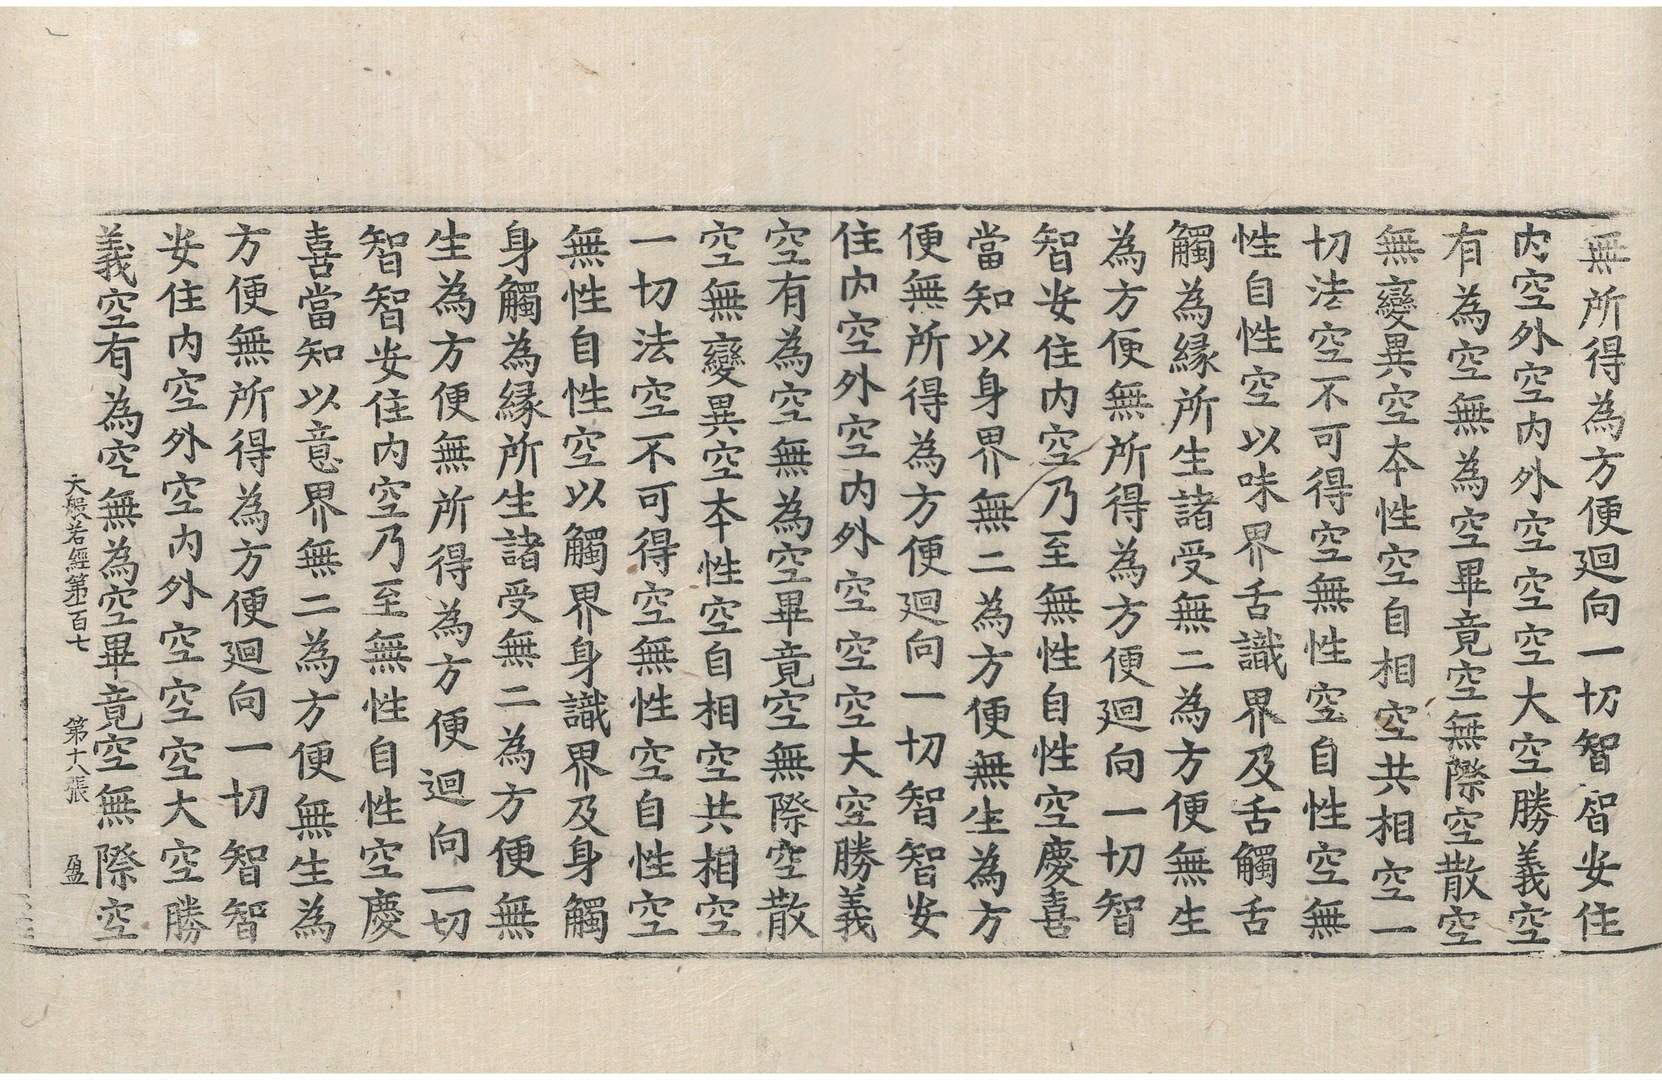 無所得為方便迴向一切智智安住
內空外空內外空空空大空勝義空
有為空無為空畢竟空無際空散空
無變異空本性空自相空共相空一
切法空不可得空無性空自性空無
性自性空以味界舌識界及舌觸舌
觸為緣所生諸受無二為方便無生
為方便無所得為方便迴向一切智
智安住內空乃至無性自性空慶喜
當知以身界無二為方便無生為方
便無所得為方便迴向一切智智安
住內空外空內外空空空大空勝義
空有為空無為空畢竟空無際空散
空無變異空本性空自相空共相空
一切法空不可得空無性空自性空
無性自性空以觸界身識界及身觸
身觸為緣所生諸受無二為方便無
生為方便無所得為方便迴向一切
智智安住內空乃至無性自性空慶
喜當知以意界無二為方便無生為
方便無所得為方便迴向一切智智
安住內空外空內外空空空大空勝
義空有為空無為空畢竟空無際空
大般若經第一百七 第十八張 盈